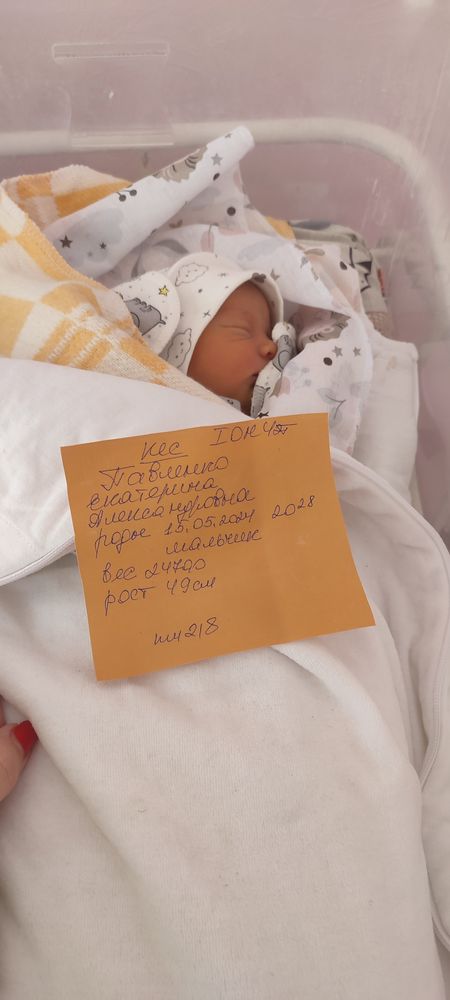 кес IОН
Павленко
Екатерина
Александровна
роды 15.05.2024 20²⁸
мальчик
вес 2470,0
рост 49см